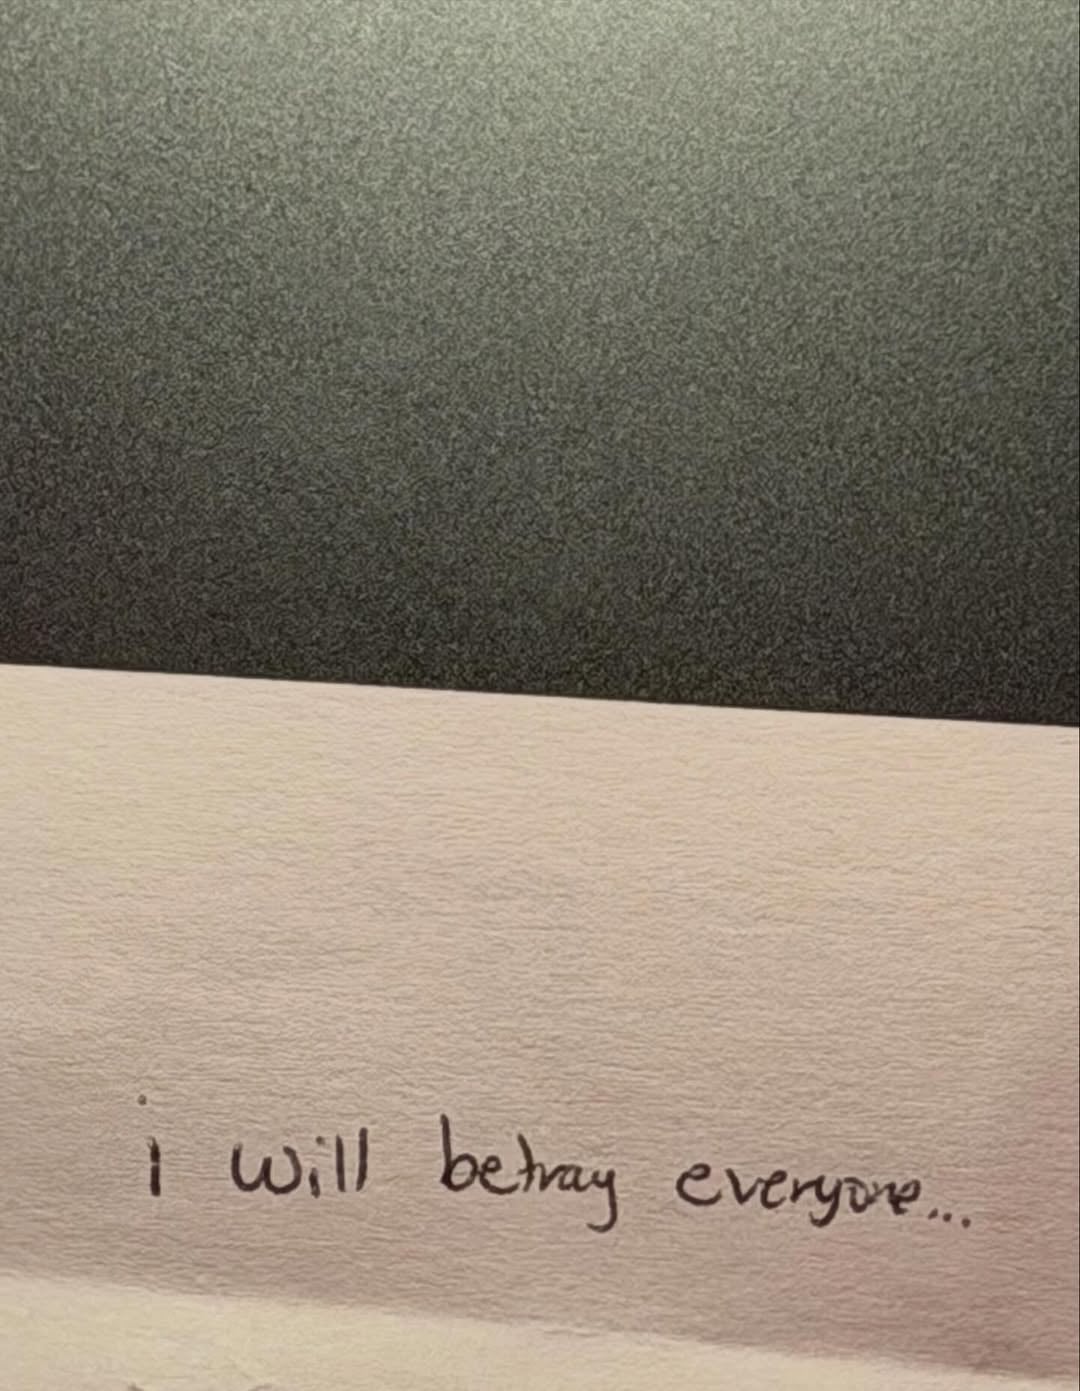 i will betray everyone...